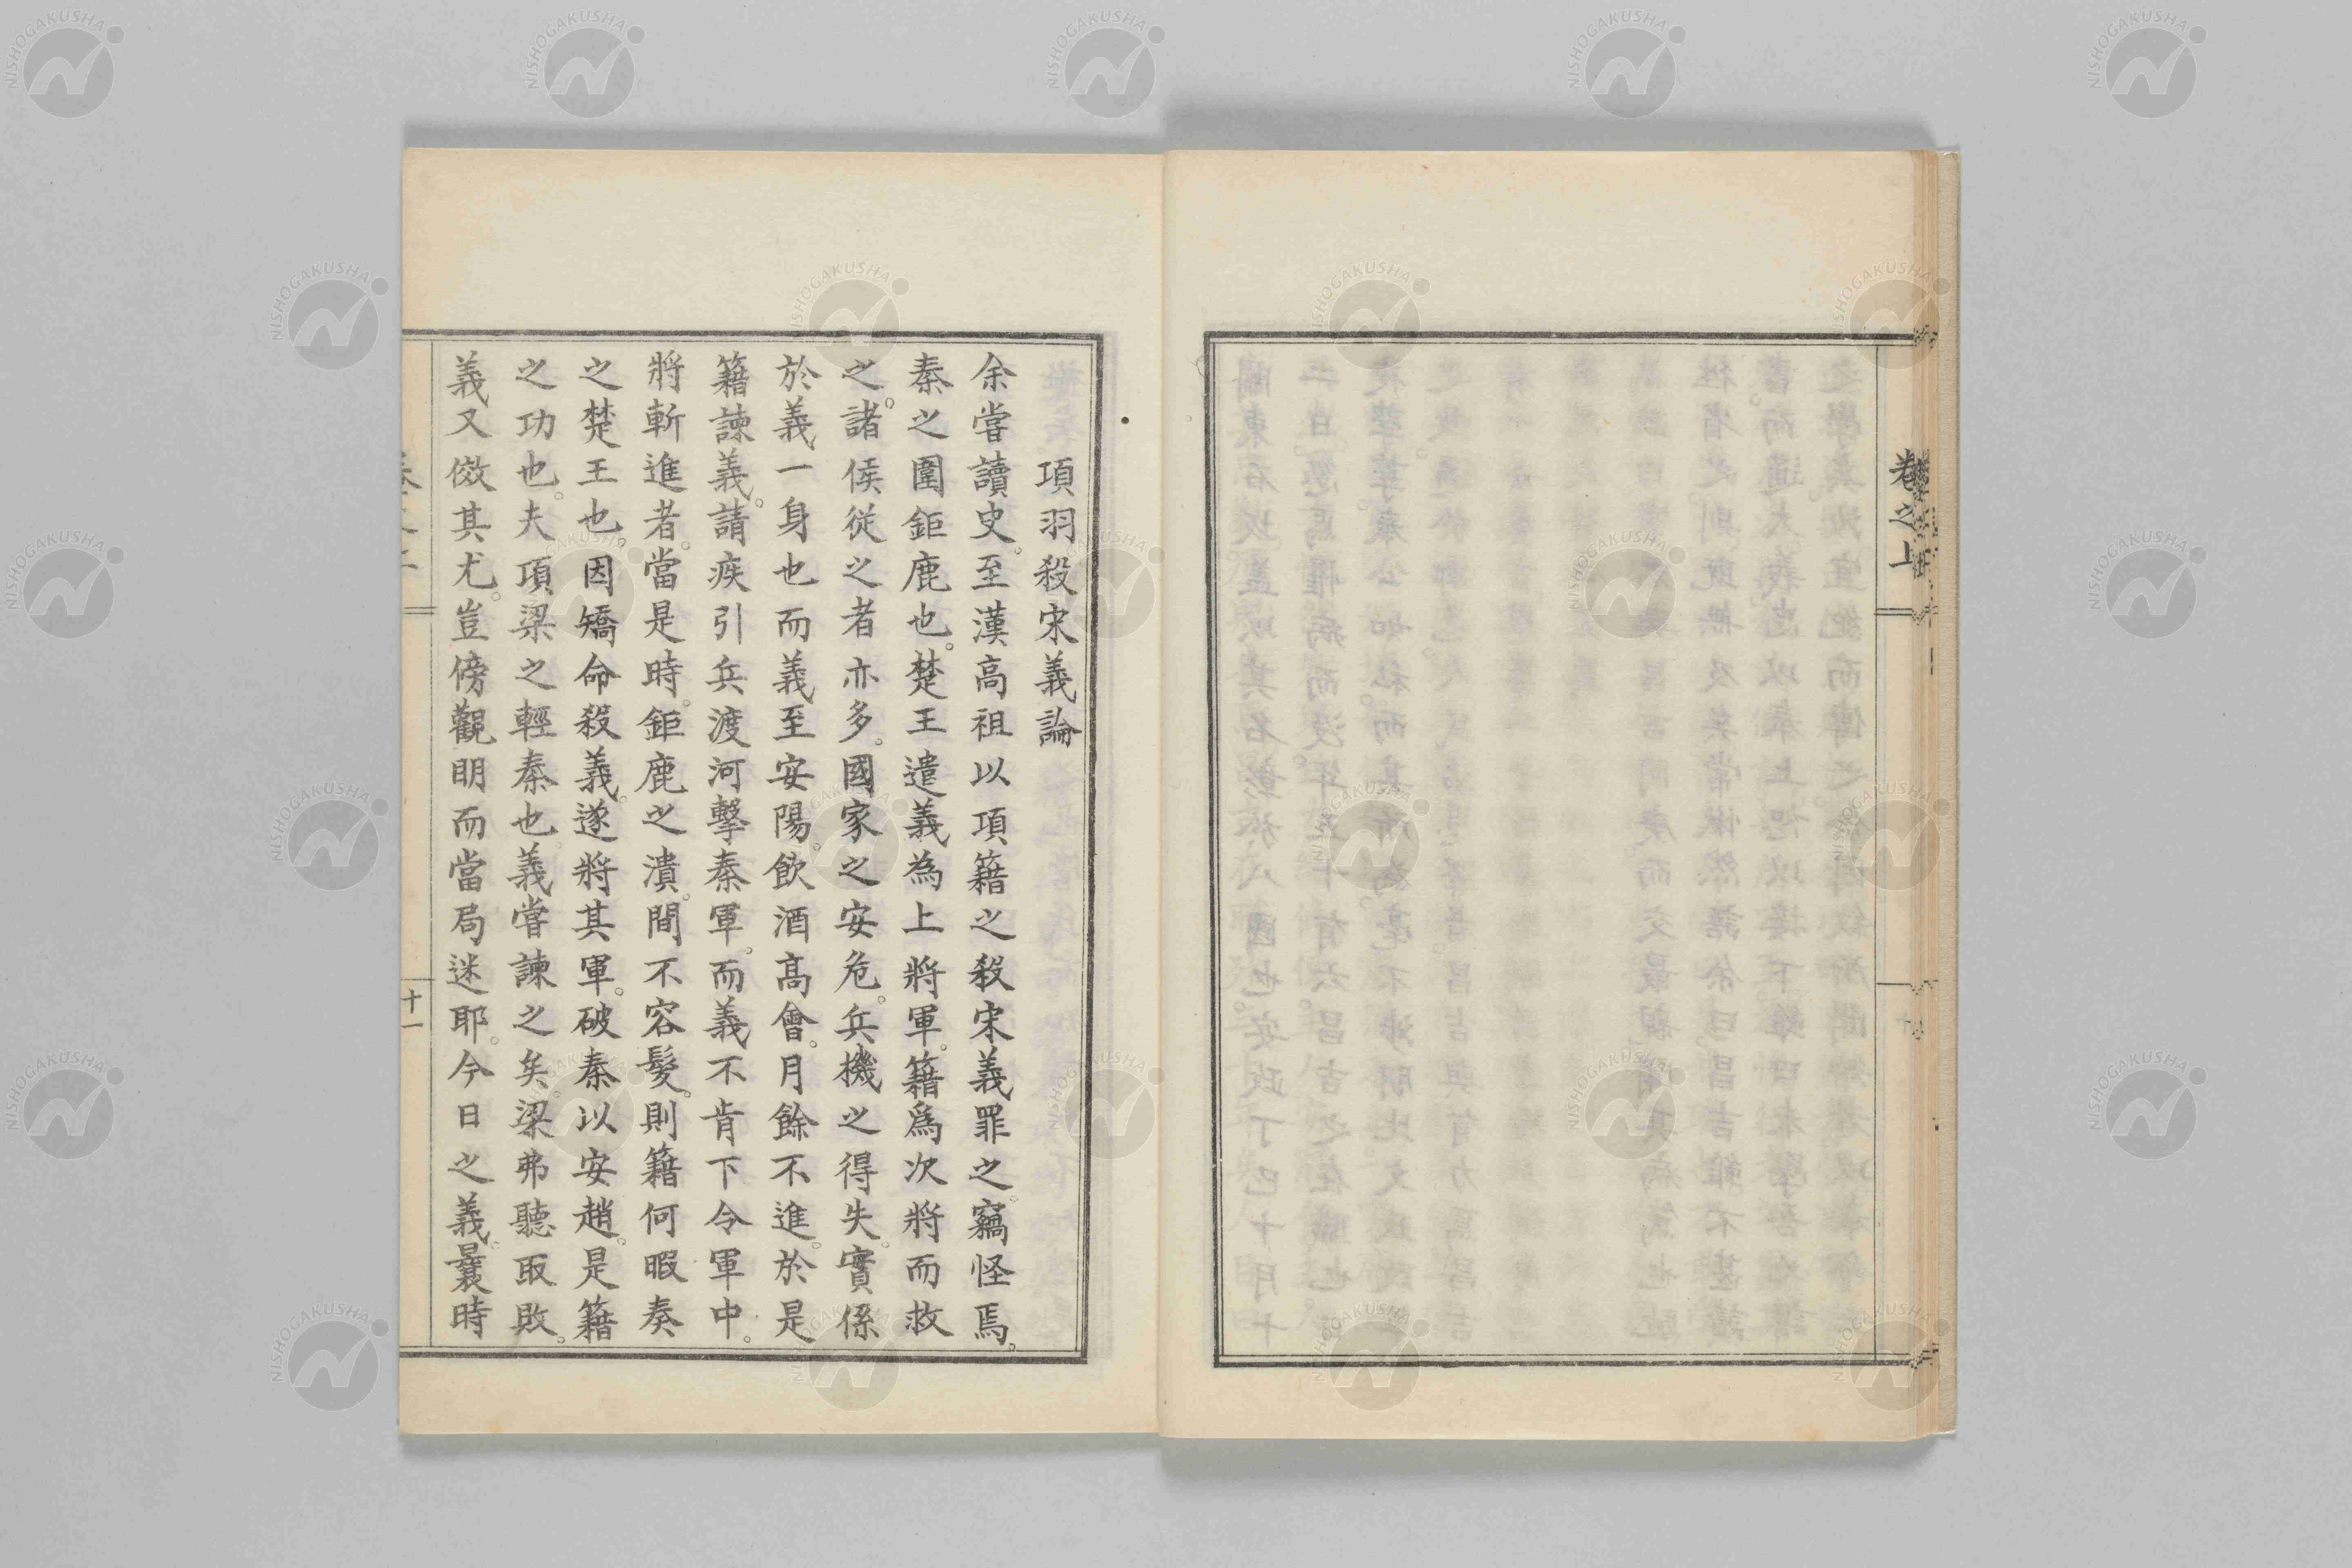 卷之上
十
項羽殺宋義論
余嘗讀史。至漢高祖以項籍之殺宋義罪之。竊怪焉。
秦之圍鉅鹿也。楚王遣義為上將軍。籍爲次將而救
之。諸侯従之者亦多。國家之安危。兵機之得失。實係
於義一身也而義至安陽。飲酒高會。月餘不進。於是
籍諫義。請疾引兵渡河擊秦軍。而義不肯下令軍中。
將斬進者。當是時。鉅鹿之潰。間不容髮。則籍何暇奏
之楚王也。因矯命殺義。遂將其軍。破秦以安趙。是籍
之功也。夫項梁之輕秦也。義嘗諫之矣。梁弗聽取敗。
義又傚其尤。豈傍觀明而當局迷耶。今日之義。曩時
十一
NISHOGAKUSHA